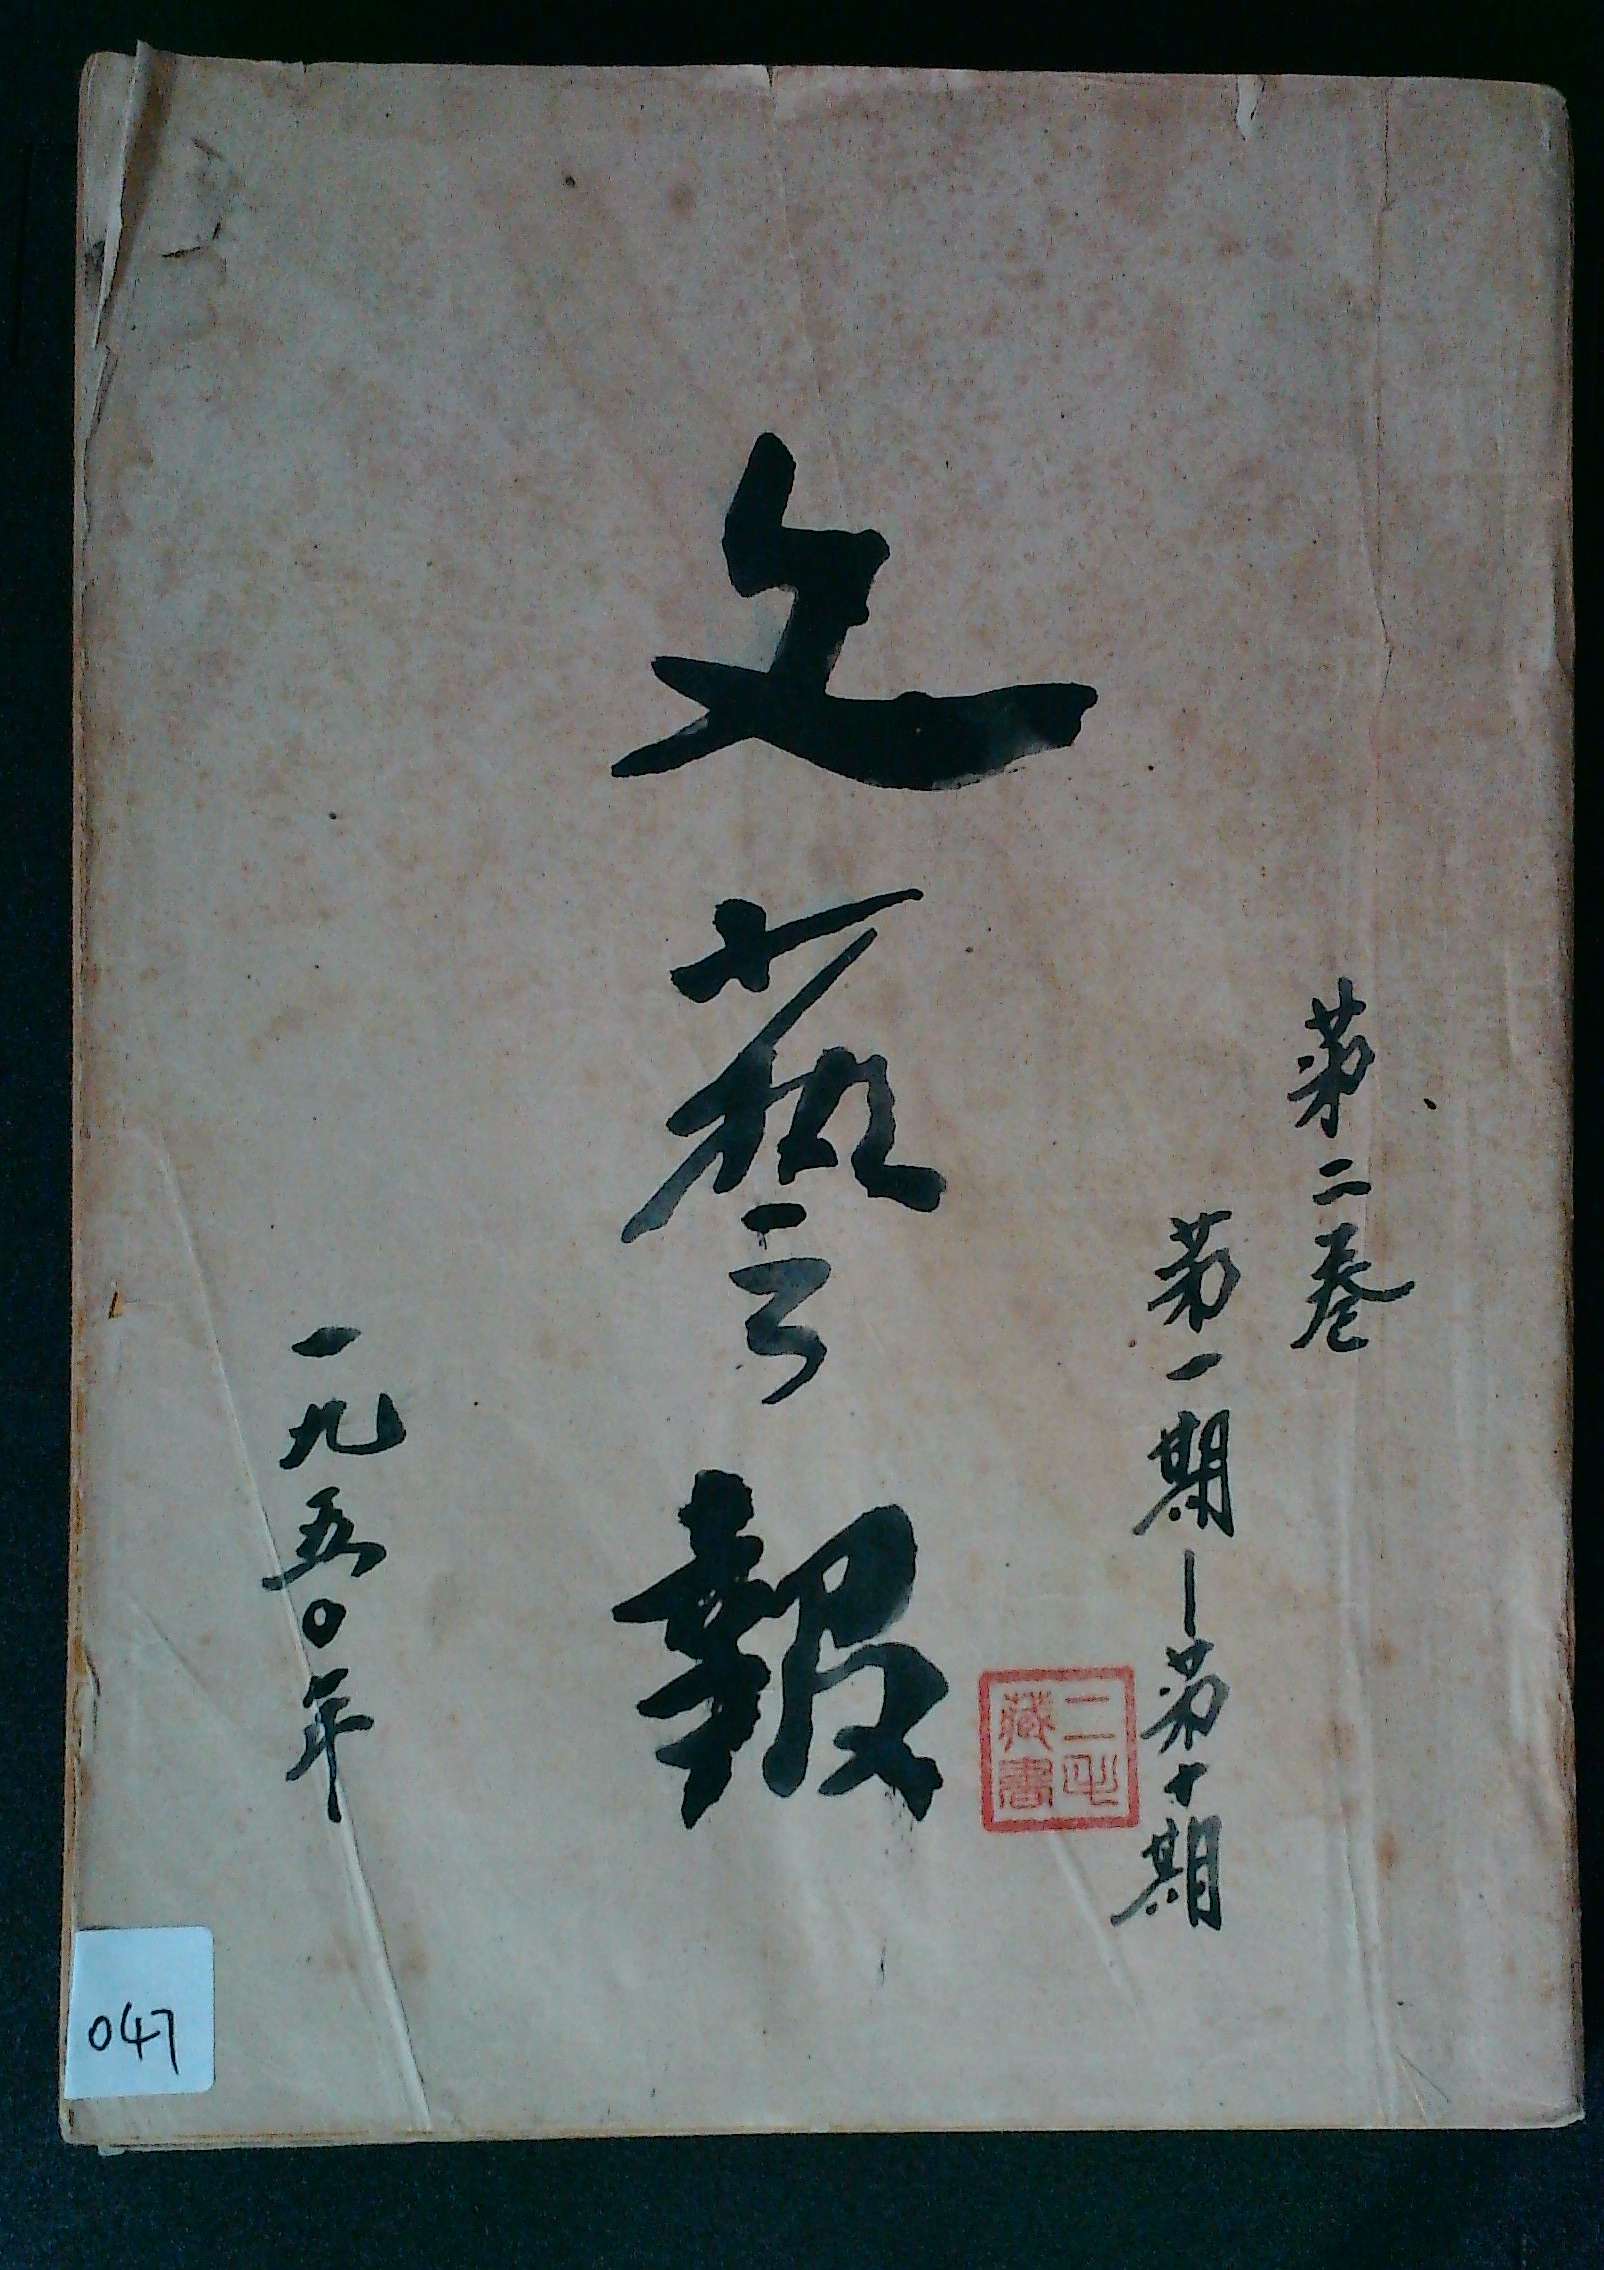 第二卷
第一期—第十期
文藝報
一九五〇年
藏書
047